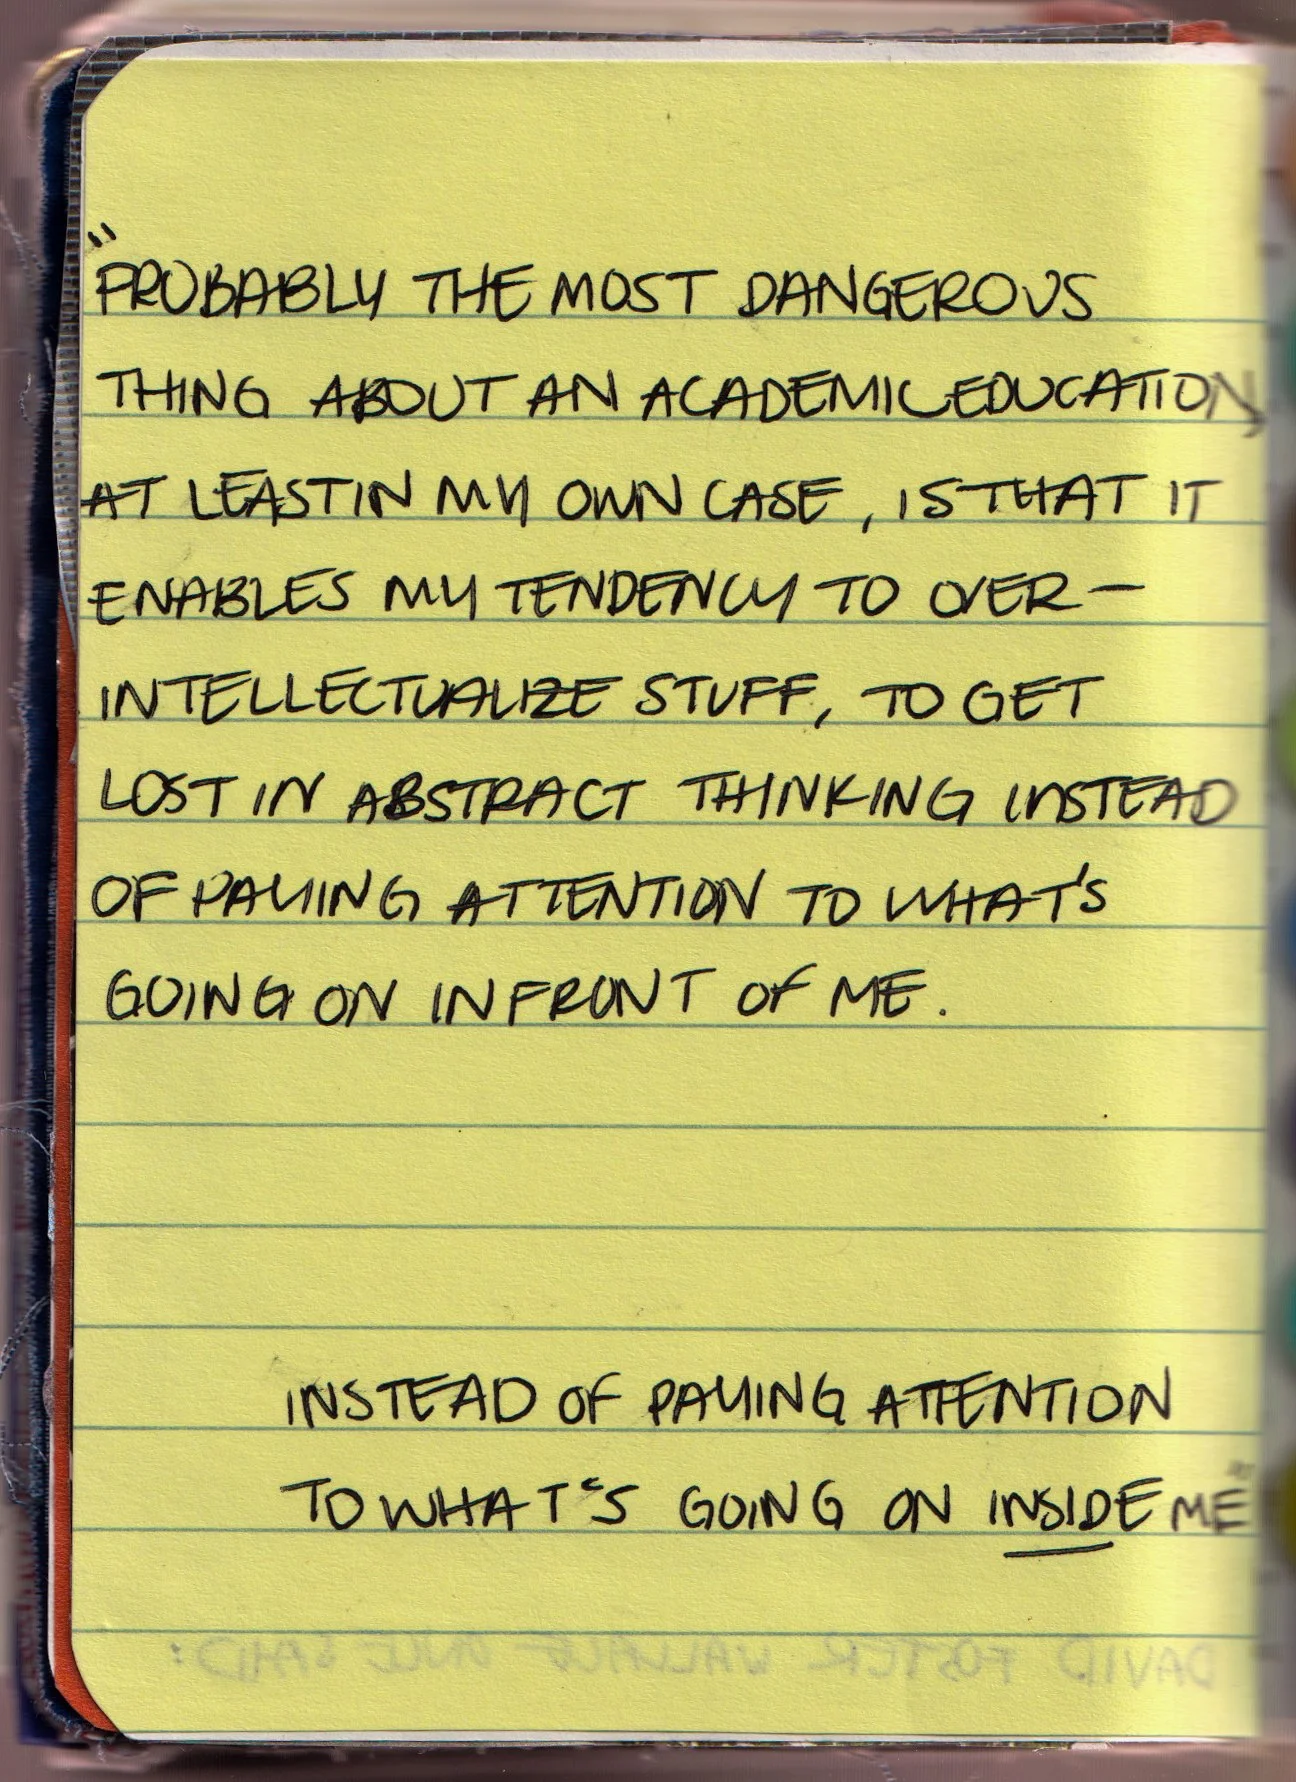 "PROBABLY THE MOST DANGEROUS
THING ABOUT AN ACADEMIC EDUCATION,
AT LEAST IN MY OWN CASE, IS THAT IT
ENABLES MY TENDENCY TO OVER-
INTELLECTUALIZE STUFF, TO GET
LOST IN ABSTRACT THINKING INSTEAD
OF PAYING ATTENTION TO WHAT'S
GOING ON IN FRONT OF ME.
INSTEAD OF PAYING ATTENTION
TO WHAT'S GOING ON INSIDE ME"
DAVID FOSTER WALLACE ONCE SAID: